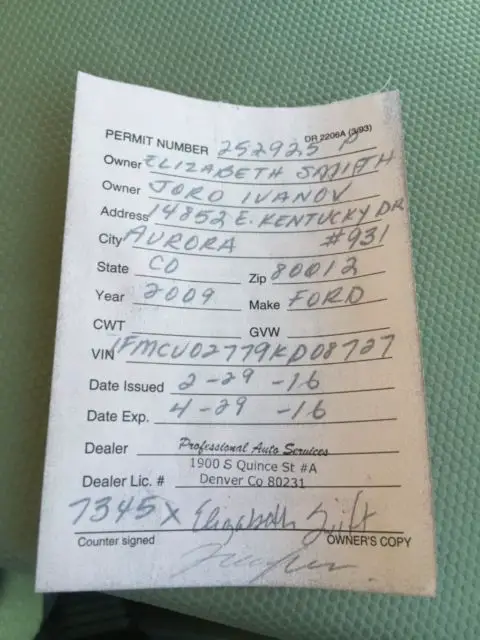 DR 2206A (3/93)
PERMIT NUMBER 252925 P
Owner ELIZABETH
Owner JORO IVANOV
Address 14852 E. KENTUCKY DR
City AURORA #931
State CO Zip 80012
Year 2009 Make FORD
CWT GVW
VIN 1FMCU02779KD08727
Date Issued 2-29-16
Date Exp. 4-29-16
Dealer Professional Auto Services
1900 S Quince St #A
Dealer Lic. # Denver Co 80231
7345 X Elizabeth
Counter signed OWNER'S COPY